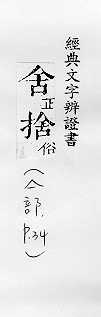 經典文字辨證書
舍正捨俗
(亼部.
P.34)